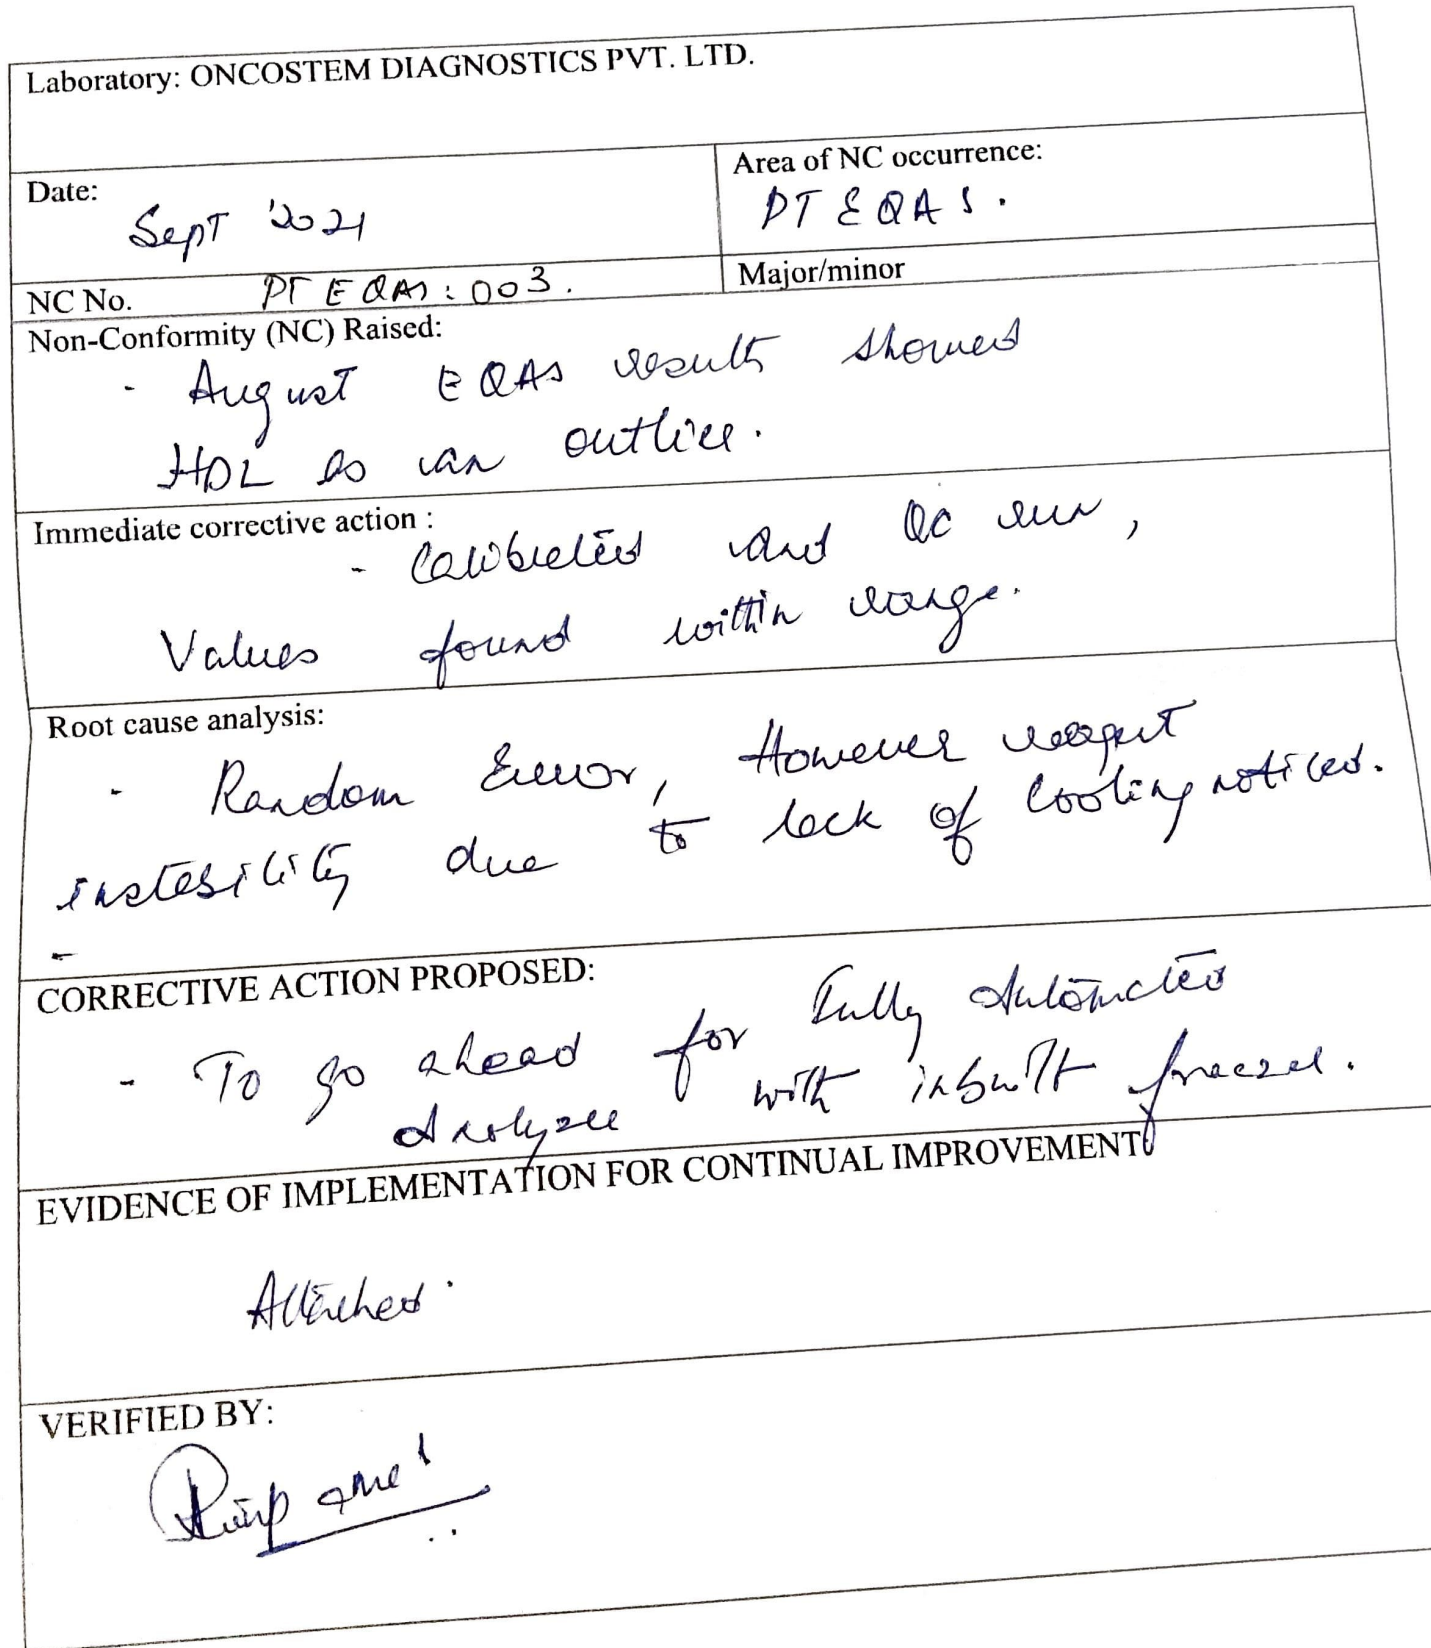 Laboratory: ONCOSTEM DIAGNOSTICS PVT. LTD.
Date:
Sept '2021
Area of NC occurrence:
PT EQAS.
NC No. PT EQAS: 003.
Major/minor
Non-Conformity (NC) Raised:
- August EQAS results showed
HDL as an outlier.
Immediate corrective action :
- Calibrated and QC run,
Values found within range.
Root cause analysis:
- Random Error, However reagent
instability due to lack of cooling noticed.
-
CORRECTIVE ACTION PROPOSED:
- To go ahead for Fully Automated
Analyzer with inbuilt freezer.
EVIDENCE OF IMPLEMENTATION FOR CONTINUAL IMPROVEMENT
Attached.
VERIFIED BY: